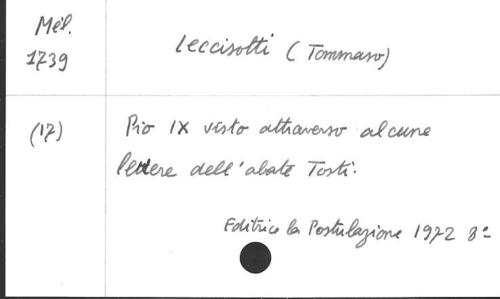 Mél. Leccisotti (Tommaso)
1739
(17) Pio IX visto attraverso alcune
lettere dell'abate Tosti.
Editrice la Postulazione 1972 8º